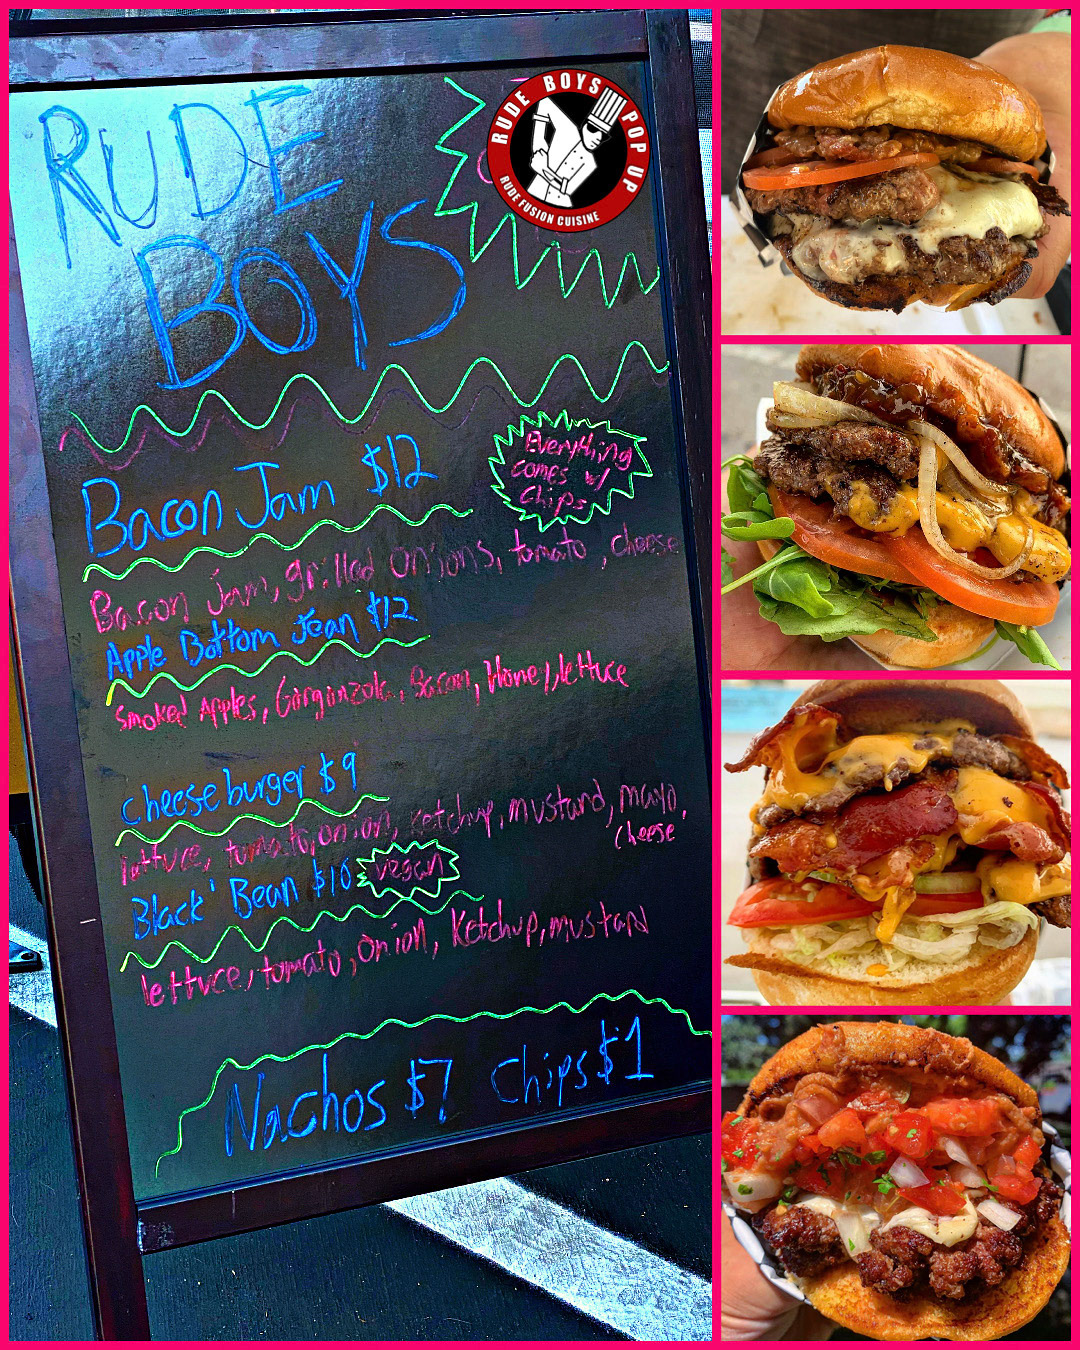 RUDE
BOYS
RUDE BOYS POP UP
RUDE FUSION CUISINE
Bacon Jam $12
Everything
comes w/
Chips
Bacon jam, grilled onions, tomato, cheese
Apple Bottom Jean $12
Smoked Apples, Gorgonzola, Bacon, Honey, lettuce
cheeseburger $9
lettuce, tomato, onion, ketchup, mustard, mayo,
cheese
Black Bean $10 vegan
lettuce, tomato, onion, ketchup, mustard
Nachos $7 Chips $1